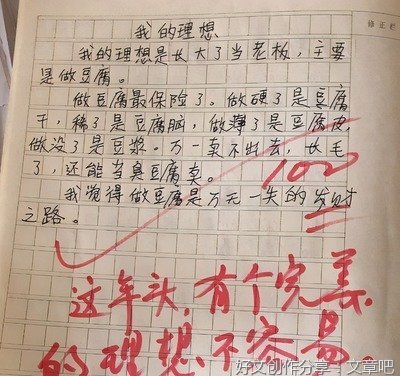 我的理想
修正栏
我的理想是长大了当老板，主要
是做豆腐。
做豆腐最保险了。做硬了是豆腐
干，稀了是豆腐脑，做薄了是豆腐皮，
做没了是豆浆。万一卖不出去，长毛
了，还能当臭豆腐卖。
100
我觉得做豆腐是万无一失的发财
之路。
这年头，有个完美
的理想不容易。
好文创作分享－文章吧